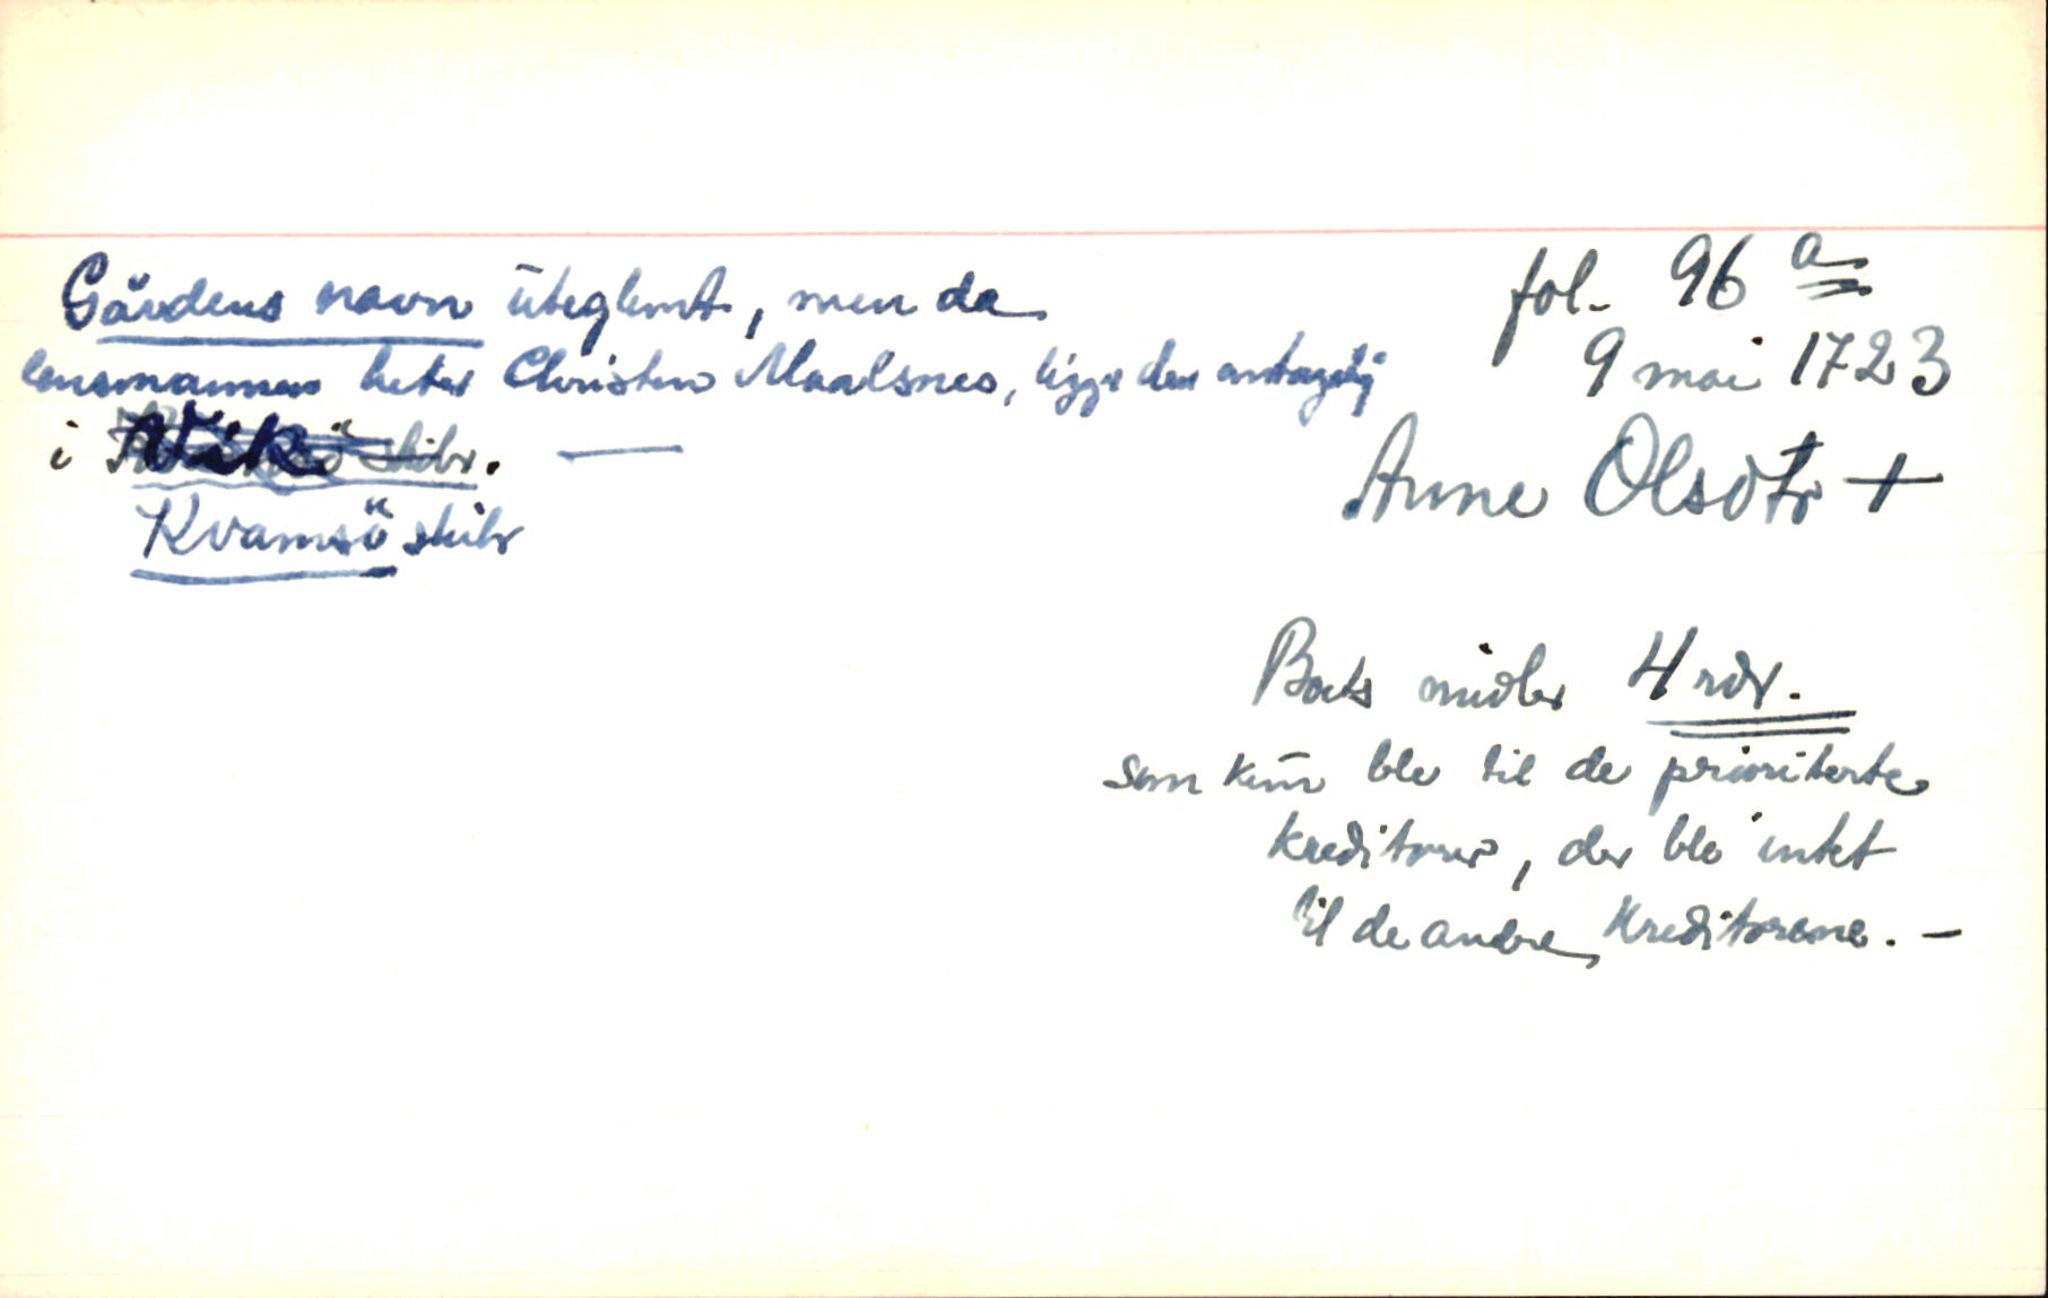 Gårdens navn uteglemt, men da
lensmannen heter Christen Maalsnes, ligger den antagelig
i Vik skibr.
Kvamsö skibr
fol. 96 a
9 mai 1723
Anne Olsdtr +
Boets midler 4 rdr.
som kun ble til de prioriterte
kreditorer, der ble intet
til de andre kreditorene. -